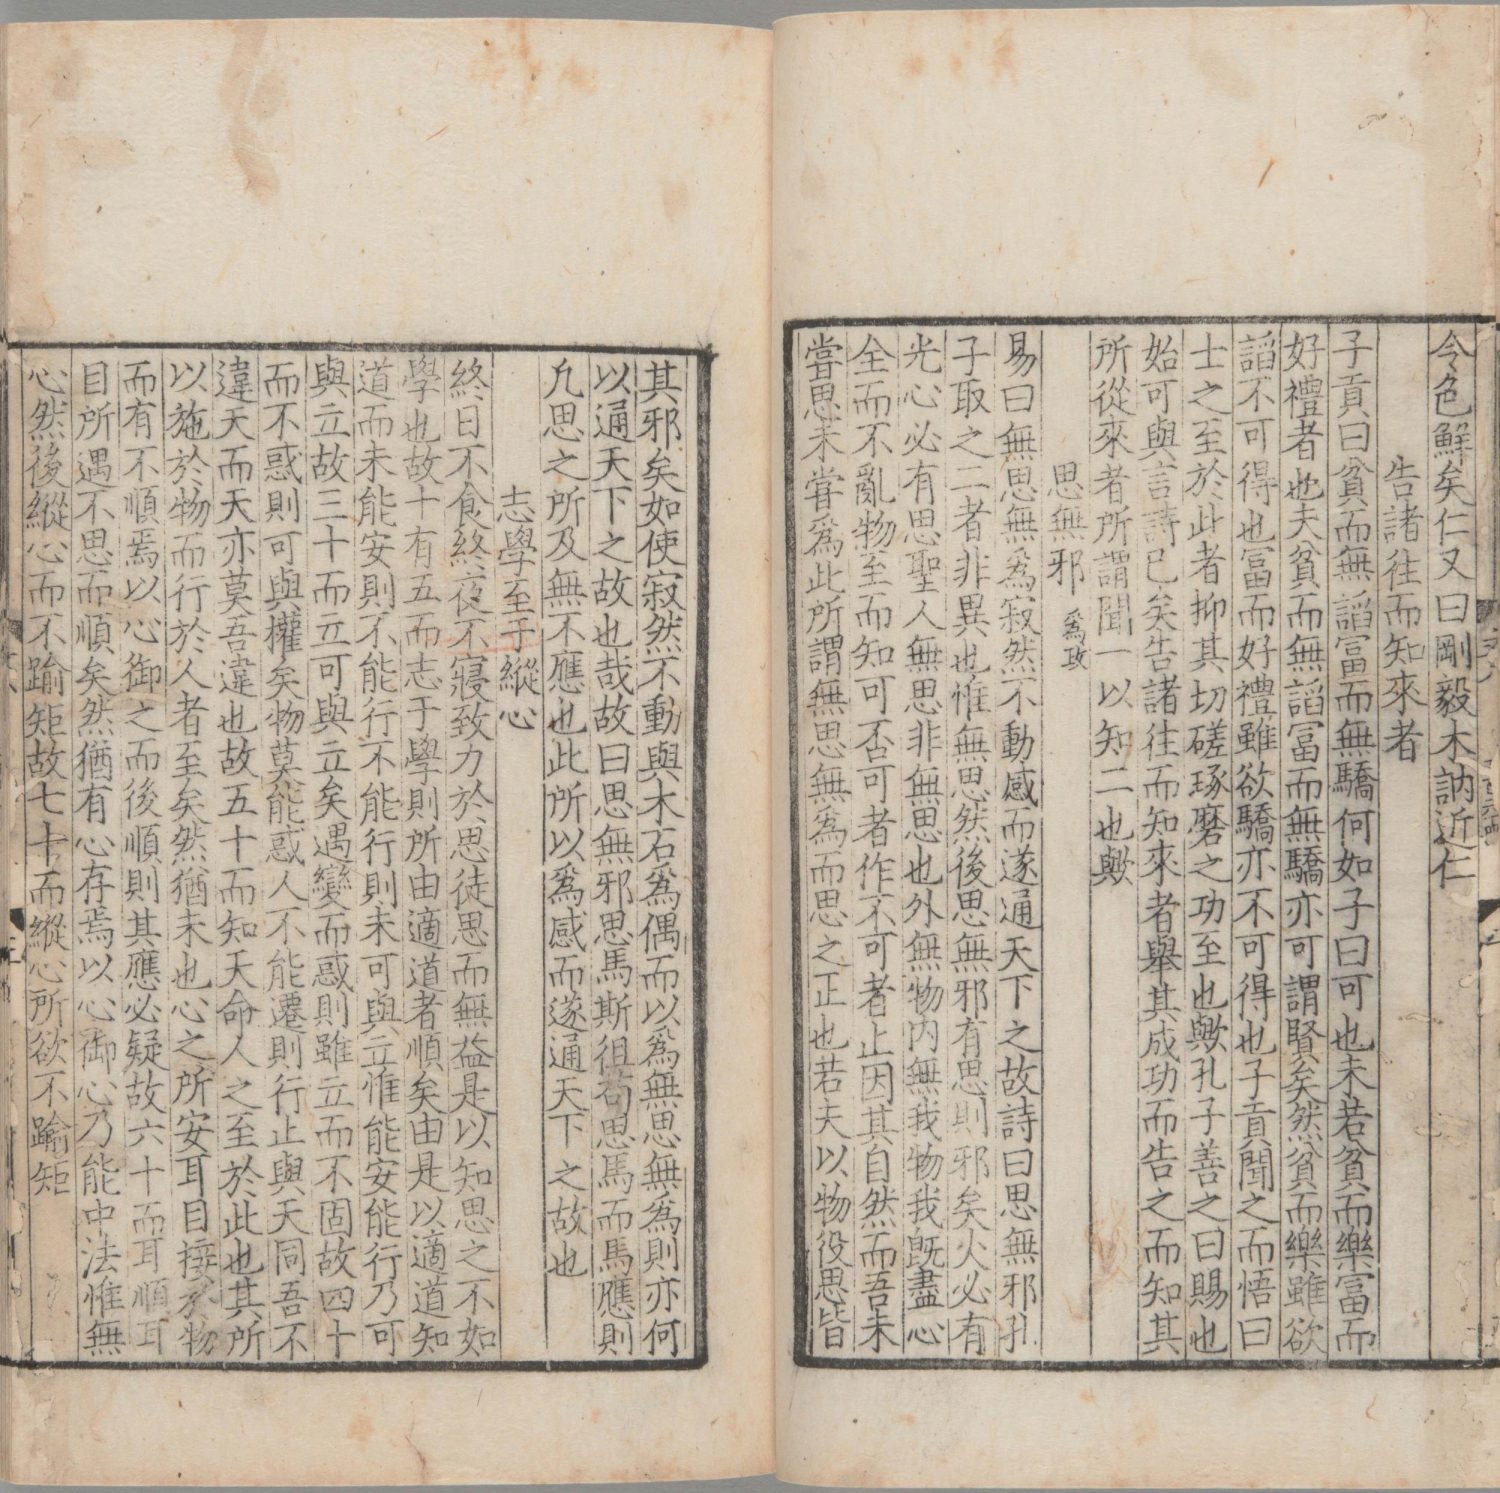 令色鮮矣仁又曰剛毅木訥近仁
告諸往而知來者
子貢曰貧而無諂富而無驕何如子曰可也未若貧而樂富而
好禮者也夫貧而無諂富而無驕亦可謂賢矣然貧而樂雖欲
諂不可得也富而好禮雖欲驕亦不可得也子貢聞之而悟曰
士之至於此者抑其切磋琢磨之功至也歟孔子善之曰賜也
始可與言詩已矣告諸往而知來者舉其成功而告之而知其
所從來者所謂聞一以知二也歟
思無邪 為政
易曰無思無為寂然不動感而遂通天下之故詩曰思無邪孔
子取之二者非異也惟無思然後思無邪有思則邪矣火必有
光心必有思聖人無思非無思也外無物內無我物我既盡心
全而不亂物至而知可否可者作不可者止因其自然而吾未
嘗思未嘗為此所謂無思無為而思之正也若夫以物役思皆
其邪矣如使寂然不動與木石為偶而以為無思無為則亦何
以通天下之故也哉故曰思無邪思馬斯徂苟思馬而馬應則
凢思之所及無不應也此所以為感而遂通天下之故也
志學至于縱心
終日不食終夜不寢致力於思徒思而無益是以知思之不如
學也故十有五而志于學則所由適道者順矣由是以適道知
道而未能安則不能行不能行則未可與立惟能安能行乃可
與立故三十而立可與立矣遇變而惑則雖立而不固故四十
而不惑則可與權矣物莫能惑人不能遷則行止與天同吾不
違天而天亦莫吾違也故五十而知天命人之至於此也其所
以施於物而行於人者至矣然猶未也心之所安耳目接於物
而有不順焉以心御之而後順則其應必疑故六十而耳順耳
目所遇不思而順矣然猶有心存焉以心御心乃能中法惟無
心然後縱心而不踰矩故七十而縱心所欲不踰矩